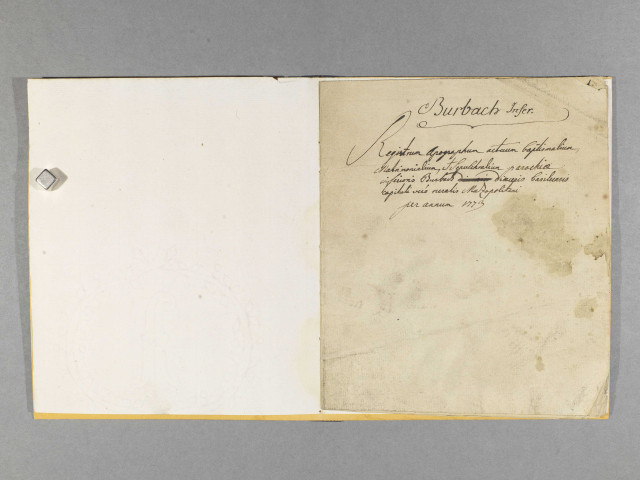 Burbach Infer.
Registrum apographum actuum baptismalium,
Matrimonialium, & Sepulchralium parochiæ
inferioris Burbach diœcesis basileensis
Capituli vero ruralis
per annum 1773